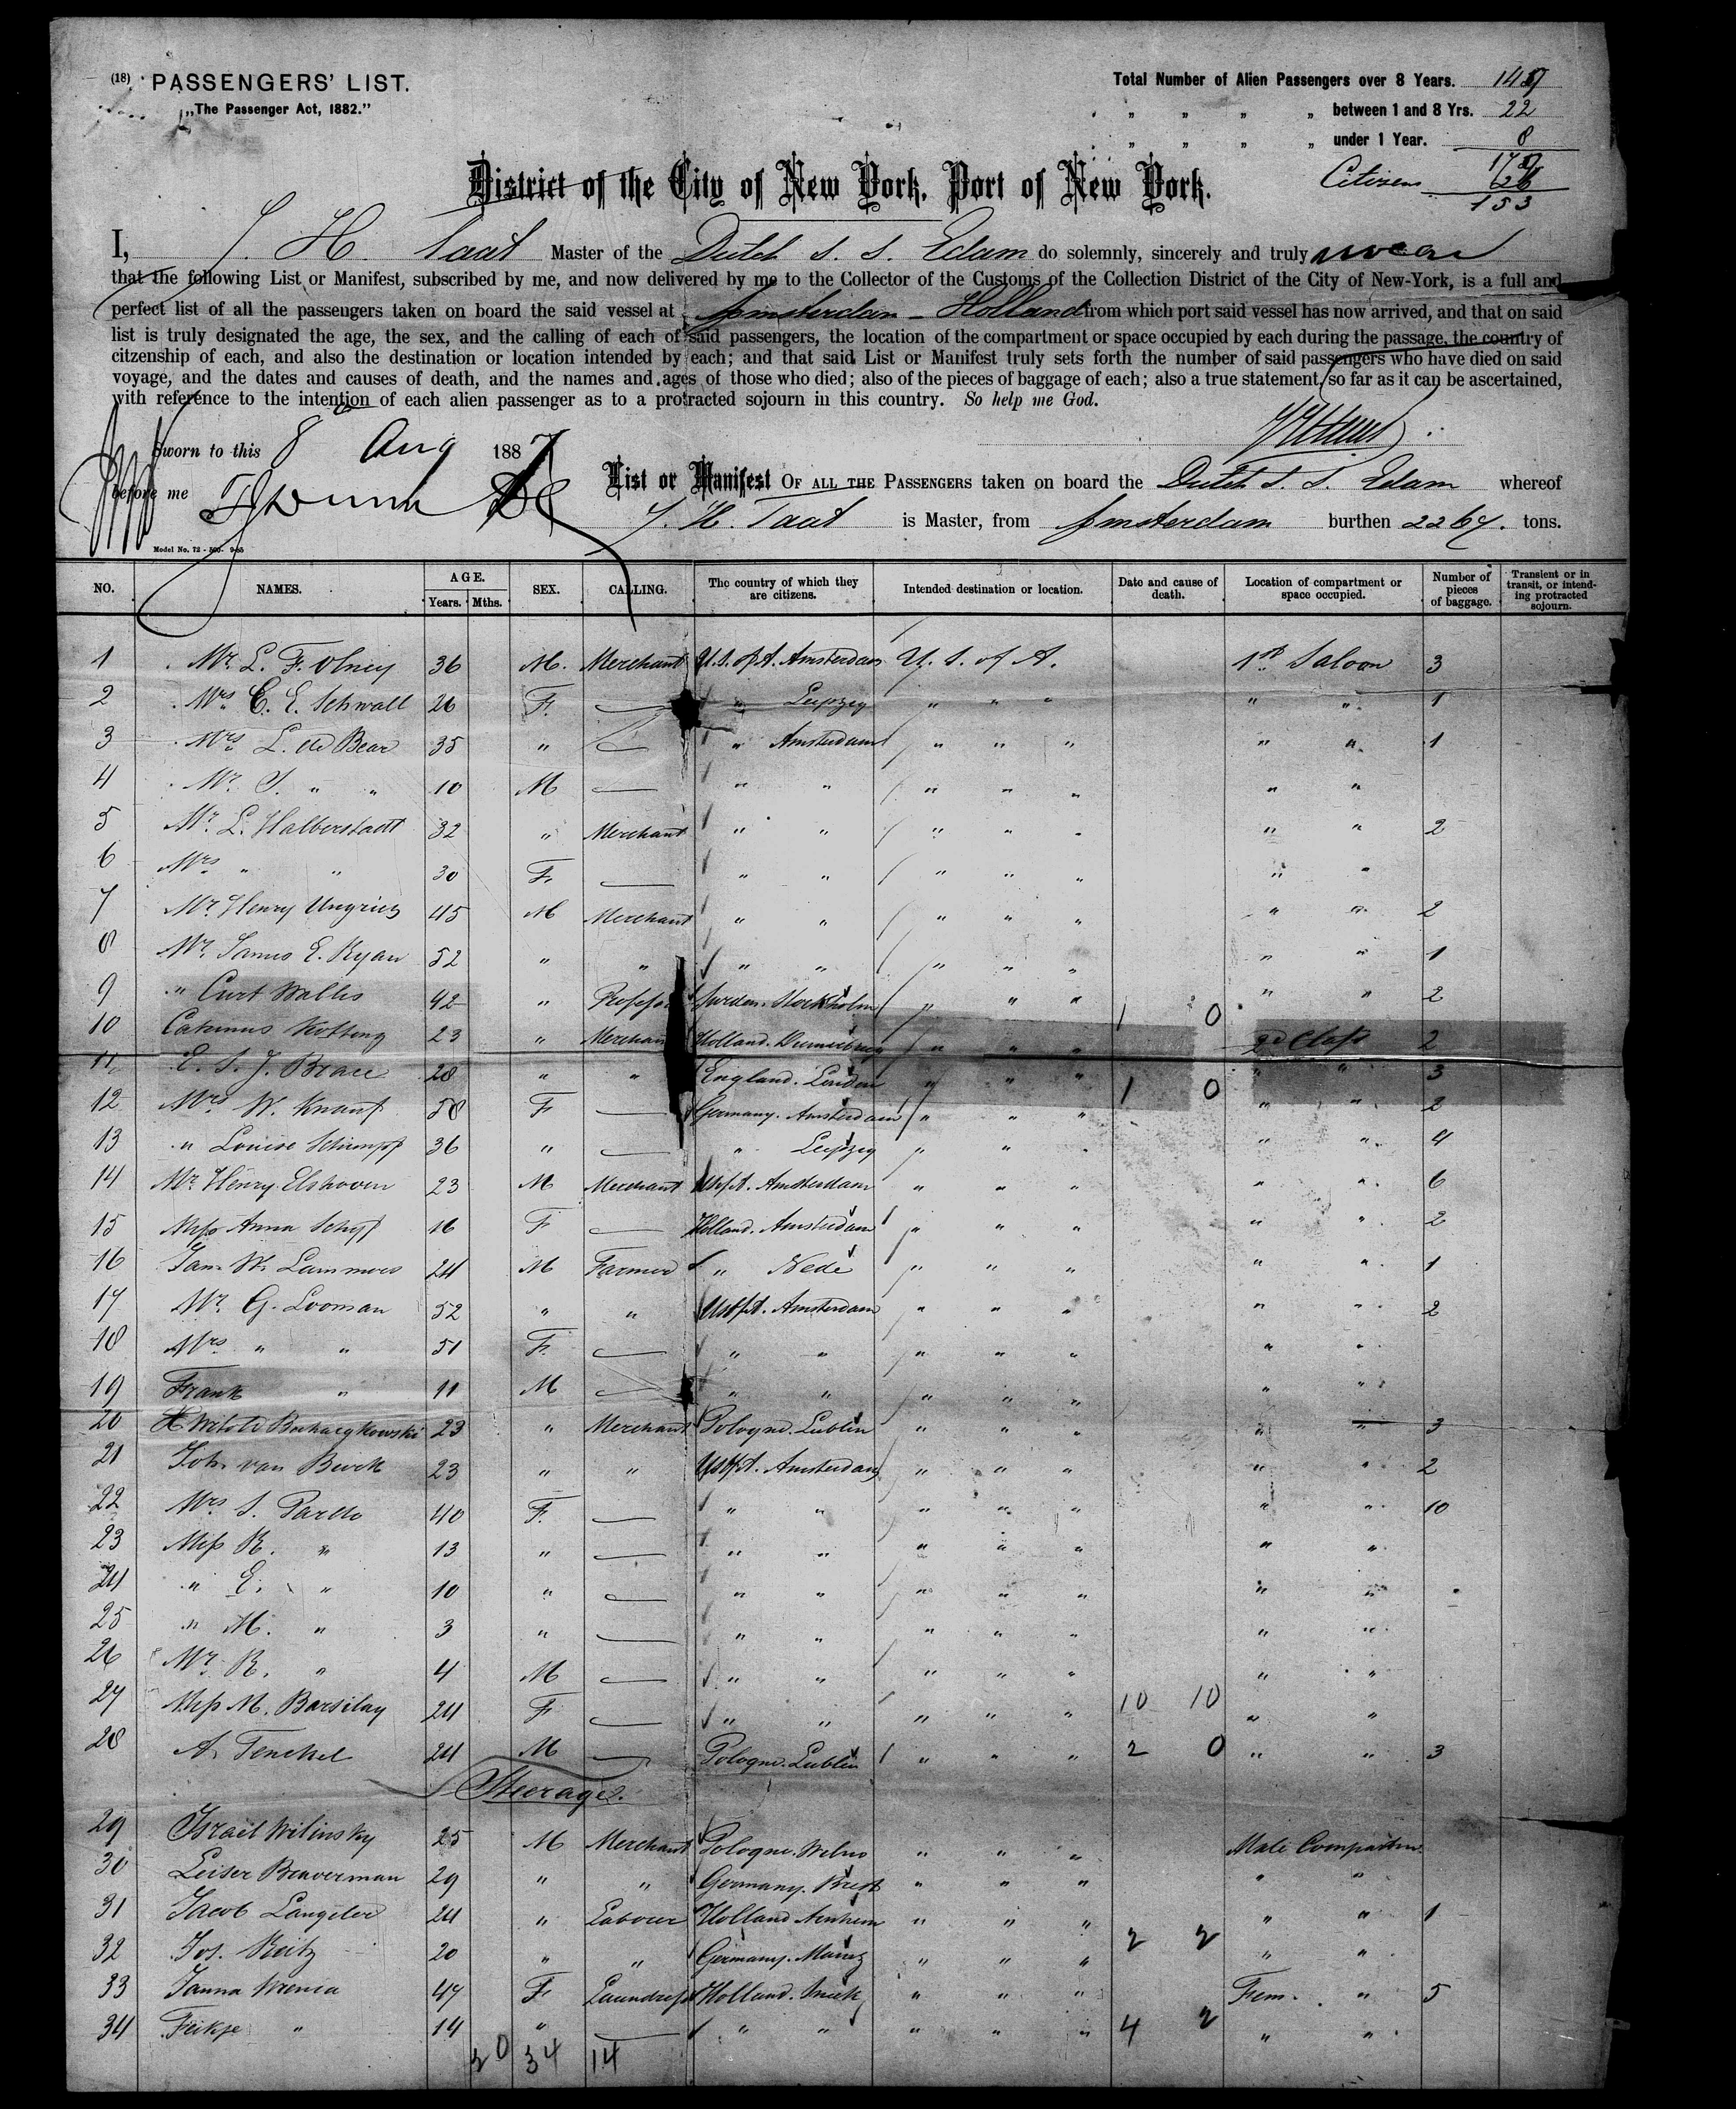 (18) PASSENGERS' LIST.
„The Passenger Act, 1882."
Total Number of Alien Passengers over 8 Years.
„ „ „ „ between 1 and 8 Yrs. 22
„ „ „ „ under 1 Year. 8
Citizens 26
153
District of the City of New York, Port of New York.
I, J. H. Taat Master of the Dutch S. S. Edam do solemnly, sincerely and truly swear
that the following List or Manifest, subscribed by me, and now delivered by me to the Collector of the Customs of the Collection District of the City of New-York, is a full and
perfect list of all the passengers taken on board the said vessel at Amsterdam - Holland from which port said vessel has now arrived, and that on said
list is truly designated the age, the sex, and the calling of each of said passengers, the location of the compartment or space occupied by each during the passage, the country of
citzenship of each, and also the destination or location intended by each; and that said List or Manifest truly sets forth the number of said passengers who have died on said
voyage, and the dates and causes of death, and the names and ages of those who died; also of the pieces of baggage of each; also a true statement, so far as it can be ascertained,
with reference to the intention of each alien passenger as to a protracted sojourn in this country. So help me God.
Sworn to this 8 Aug 1887
before me
List or Manifest OF ALL THE PASSENGERS taken on board the Dutch S. S. Edam whereof
J. H. Taat is Master, from Amsterdam burthen 2267. tons.
Model No. 72 - 500- 9-85
NO. NAMES. AGE. Years. Mths. SEX. CALLING. The country of which they are citizens. Intended destination or location. Date and cause of death. Location of compartment or space occupied. Number of pieces of baggage. Transient or in transit, or intending protracted sojourn.
1 Mr. L. F. Olney 36 M. Merchant U.S. of A. Amsterdam U. S. of A. 1st Saloon 3
2 Mrs C. E. Schwall 26 F. — " Leipzig " " " " " 1
3 Mrs L. de Bear 35 " — " Amsterdam " " " " " 1
4 Mr. S. " " 10 M — " " " " " " "
5 Mr. L. Halberstadt 32 " Merchant " " " " " " " 2
6 Mrs " " 30 F. — " " " " " " "
7 Mr. Henry 45 M Merchant " " " " " " " 2
8 Mr. James E. Ryan 52 " " " " " " " " " 1
9 " Curt Wallis 42 " Professor Sweden. Stockholm " " " 1 0 " " 2
10 23 " Merchant Holland. " " " 2d Class 2
11 E. S. J. Brace 28 " " England. London " " " 1 0 " " 3
12 Mrs W. Knauf 58 F — Germany. Amsterdam " " " " " 2
13 " Louise Schimpf 36 " — " Leipzig " " " " " 4
14 Mr. Henry Elshoven 23 M Merchant U.S. of A. Amsterdam " " " " " 6
15 Miss Anna Schyf 16 F — Holland. Amsterdam " " " " " 2
16 Jan W. Lammers 24 M Farmer " Nede " " " " " 1
17 Mr. G. Looman 52 " " U.S. of A. Amsterdam " " " " " 2
18 Mrs " " 51 F. — " " " " " " "
19 Frank " 11 M — " " " " " " "
20 23 " Merchant Pologne. Lublin " " " " " 3
21 Joh. van 23 " " U.S. of A. Amsterdam " " " " " 2
22 Mrs S. Pardo 40 F. — " " " " " " " 10
23 Miss R. " 13 " — " " " " " " "
24 " E. " 10 " — " " " " " " "
25 " M. " 3 " — " " " " " " "
26 Mr. R. " 4 M — " " " " " " "
27 Miss M. Barsilay 24 F — " " " " " 10 10 " "
28 A. Tenchel 24 M — Pologne. Lublin " " " 2 0 " " 3
Steerage.
29 Israel Wilinsky 25 M Merchant Pologne. Wilno " " " Male Compartm.
30 Leiser Braverman 29 " " Germany. Brest " " " " "
31 Jacob Langeler 24 " Laborer Holland Arnhem " " " " " 1
32 Jos. Reitz 20 " " Germany. Mainz " " " 2 2 " "
33 Janna 47 F. Laundress Holland. Sneek " " " Fem. " 5
34 Feikje " 14 " — " " " " " 4 2 " "
20 34 14